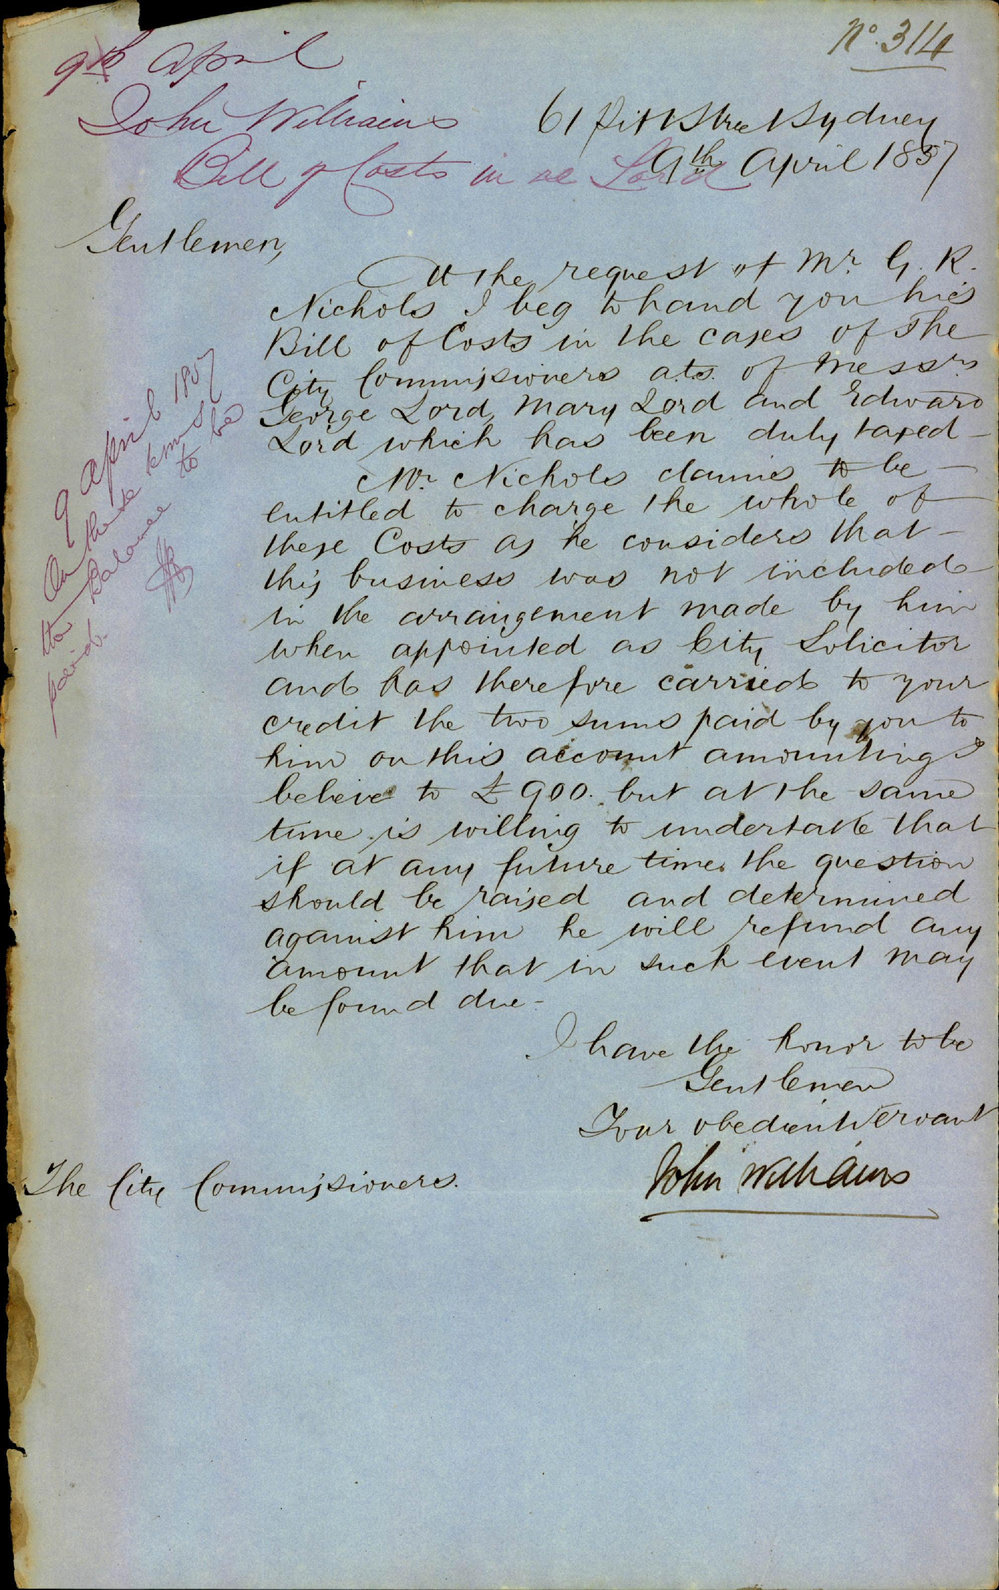 No. 314
9th April
John Williams
Bill of Costs in re Lord
61 Pitt Street Sydney
9th April 1857
Gentlemen,
At the request of Mr. G. R.
Nichols I beg to hand you his
Bill of Costs in the cases of The
City Commissioners a.t.s. of Messrs
George Lord, Mary Lord and Edward
Lord which has been duly taxed -
Mr. Nichols claims to be -
entitled to charge the whole of
these Costs as he considers that -
this business was not included
in the arrangement made by him
when appointed as City Solicitor
and has therefore carried to your
credit the two sums paid by you to
him on this account amounting I
believe to £900. but at the same
time is willing to undertake that
if at any future time the question
should be raised and determined
against him he will refund any
amount that in such event may
be found due -
I have the honor to be
Gentlemen
Your obedient Servant
John Williams
The City Commissioners.
9 April 1857
On these terms
the Balance to be
paid.